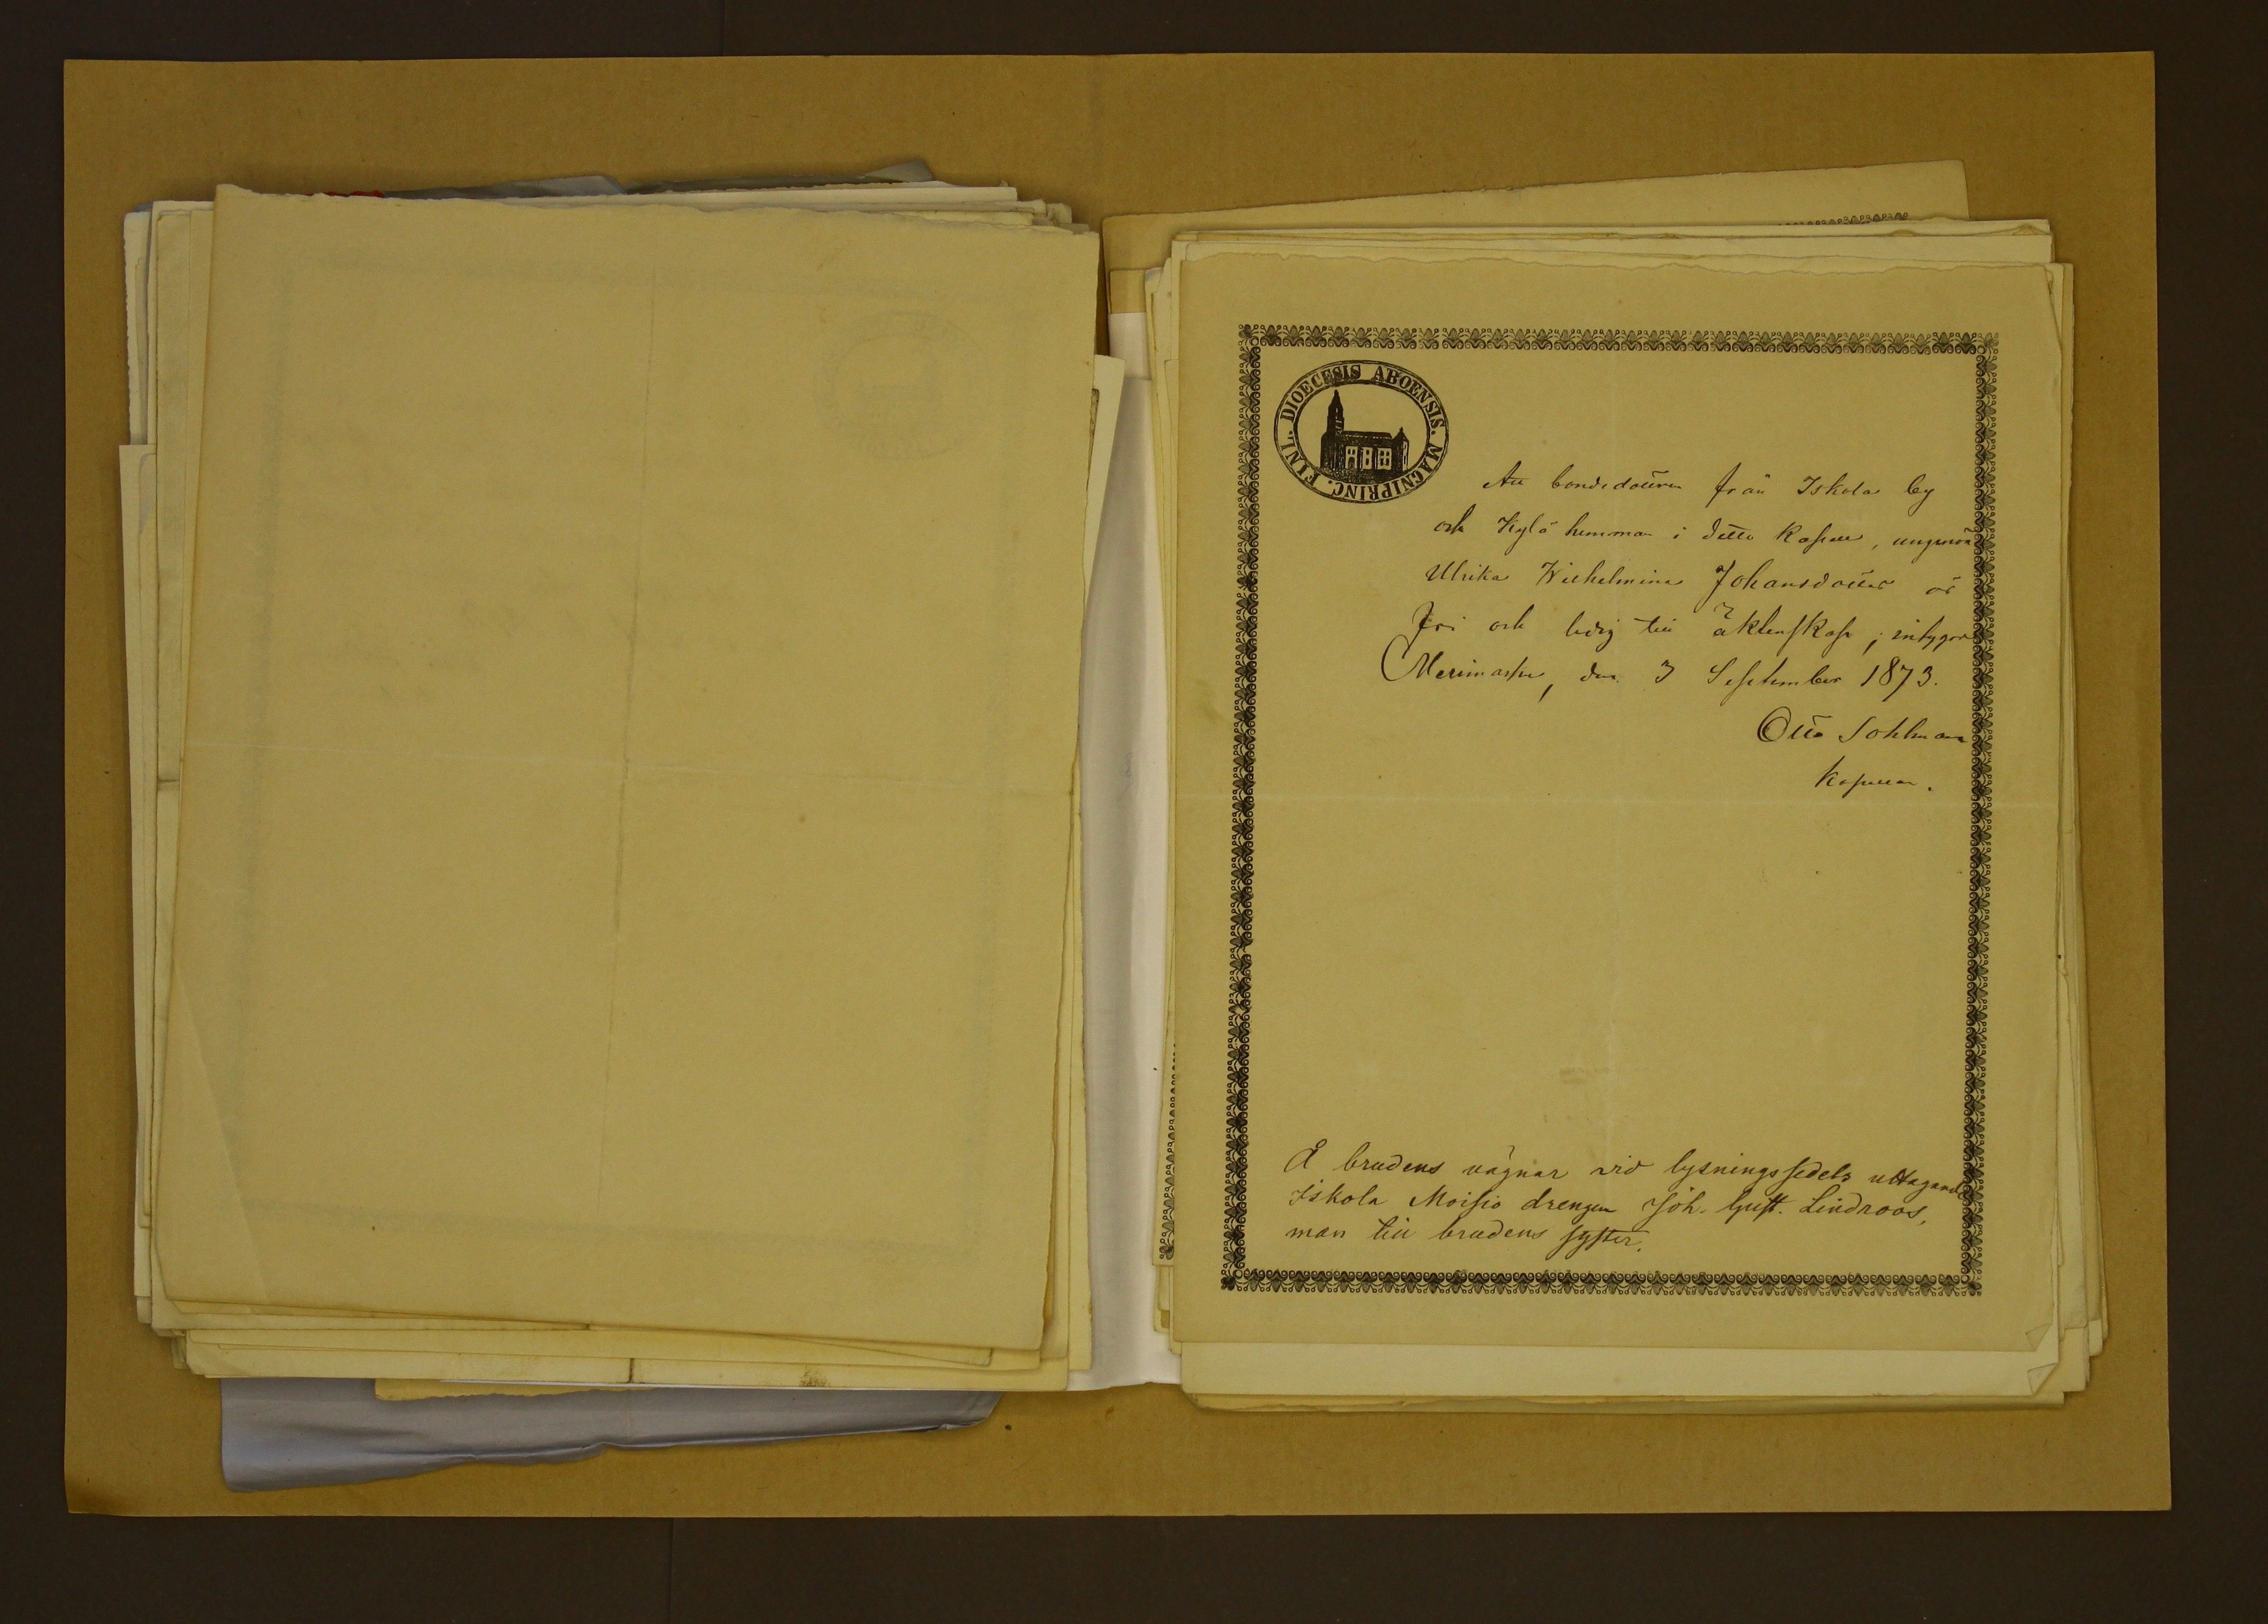 DIOECESIS ABOENSIS. MAGNIPRINC. FINL.
Att bondedottren från Iskola by
och Kylä hemman i detta Kapell, ungmön
Ulrika Wilhelmina Johansdotter är
fri och ledig till äktenskap; intygar
Merimasku, den 3 September 1873.
Otto Sohlman
Kapellan.
Å brudens vägnar vid lysningssedels uttagande
Iskola Moisio drengen Joh. Gust. Lindroos,
man till brudens syster.